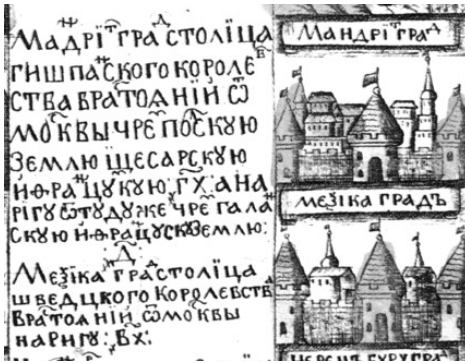 Мадріⷮ граⷣ столїца
гишпаⷩского королеⷡ
ства вратоѧнїй ѿ
моⷭквы чреⷥ поⷧскую
землю щесарскую
иѳраⷩцускую: ҂гх: а на
рігу ѿтуду же чреⷥ галаⷩ
скую иѳраⷩцускуземлю:
Меѯіка граⷣ столїца
шведцкого королевств
вратоѧнїй ѿмоⷭквы
наригу: ҂вх:
Мандріⷮ граⷣ
меѯіка градъ